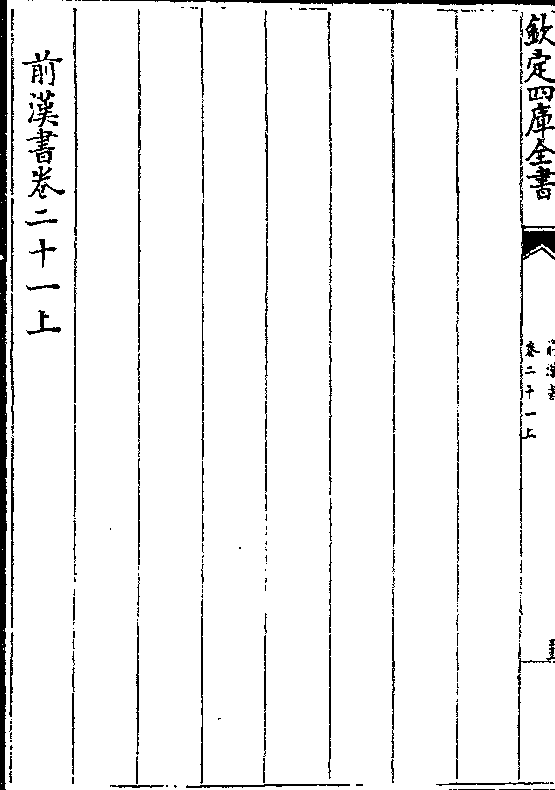 欽定四庫全書
前漢書
卷二十一上
前漢書卷二十一上